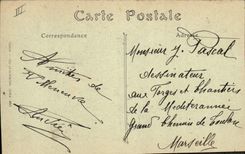 III
Carte Postale
Correspondance
Adresse
Amitiés de
Monsieur J. Pascal
dessinateur
aux Forges et Chantiers
de la Méditerranée
Grand Chemin de Toulon
Marseille